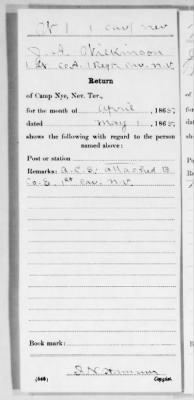 W | 1 | Cav | Nev
J. A. Wilkinson
Co. A, 1 Reg't Cav. N.V.
Return
of Camp Nye, Nev. Ter.,
for the month of April, 1865.
dated May 1, 1865.
shows the following with regard to the person
named above:
Post or station
Remarks: A.C.S. attached to
Co. E, 1st Cav. N.V.
Book mark:
(546) Copyist.